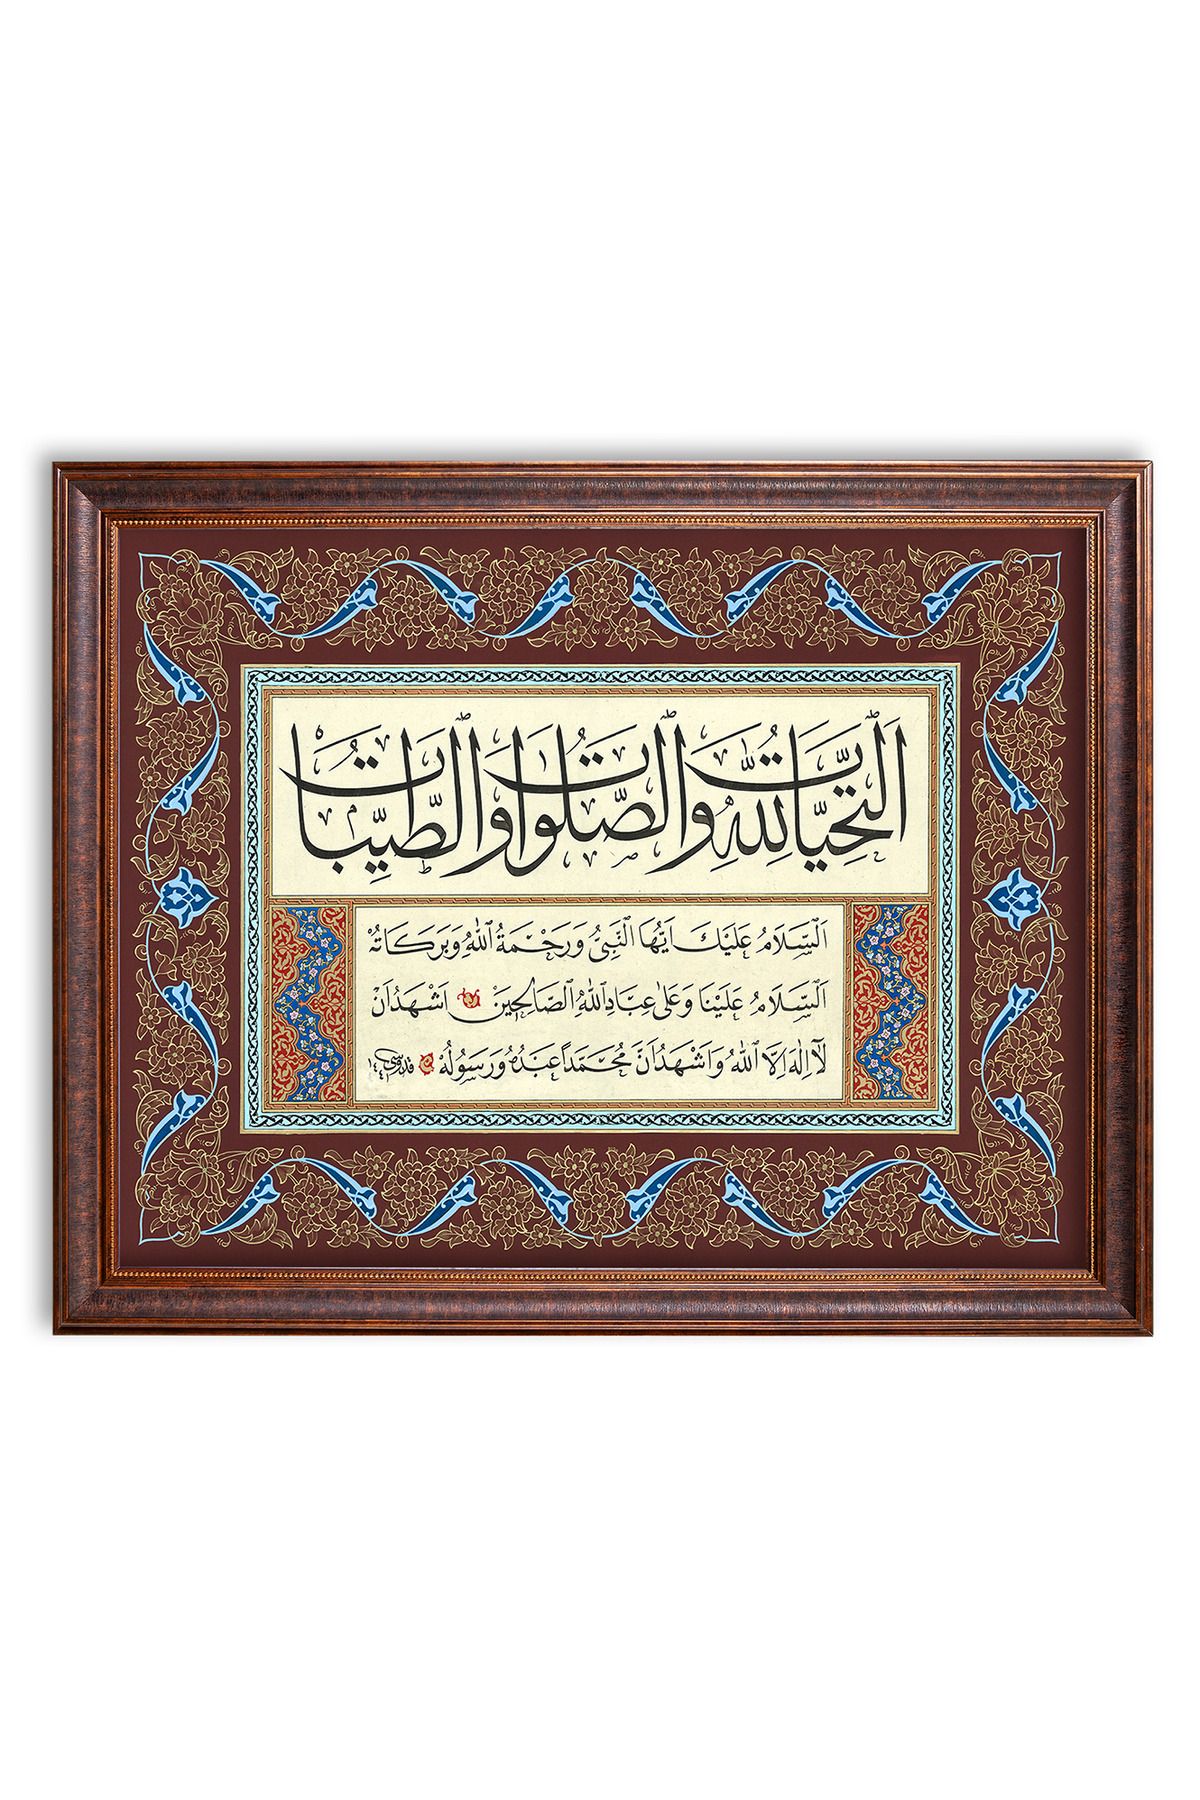 اَلتَّحِيَّاتُ لِلّٰهِ وَالصَّلَوَاتُ وَالطَّيِّبَاتُ
اَلسَّلَامُ عَلَيْكَ اَيُّهَا النَّبِىُّ وَرَحْمَةُ اللّٰهِ وَبَرَكَاتُهُ
اَلسَّلَامُ عَلَيْنَا وَعَلٰى عِبَادِ اللّٰهِ الصَّالِحِينَ اَشْهَدُ اَنْ
لَا اِلٰهَ اِلَّا اللّٰهُ وَاَشْهَدُ اَنَّ مُحَمَّدًا عَبْدُهُ وَرَسُولُهُ